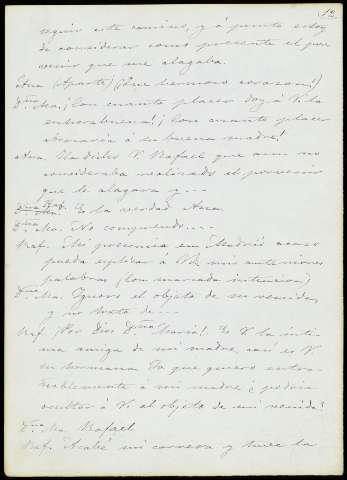 12
seguir este camino, y á punto estoy
de considerar como presente el por
venir que me alagaba.
Ana (Aparte) ¡Que hermoso corazon!
Dña Ma. ¡Con cuanto placer doy á V. la
enhorabuena! ¡Con cuanto placer
abrazaria á su buena madre!
Ana. Ha dicho V. Rafael que aun no
consideraba realizado el porvenir
que le alagara y...
Raf. Es la verdad Ana.
Dña Ma. No comprendo...
Raf. Mi presencia en Madrid acaso
pueda esplicar á V. mis anteriores
palabras (Con marcada intencion)
Dña Ma. Ignoro el objeto de su venida,
y no trato de...
Raf. ¡Por Dios Dña Maria! Es V. la inti-
ma amiga de mi madre, casi es V.
su hermana. Yo que quiero entra-
ñablemente á mi madre ¿podria
ocultar á V. el objeto de mi venida?
Dña Ma. Rafael
Raf. Acabé mi carrera y tuve la